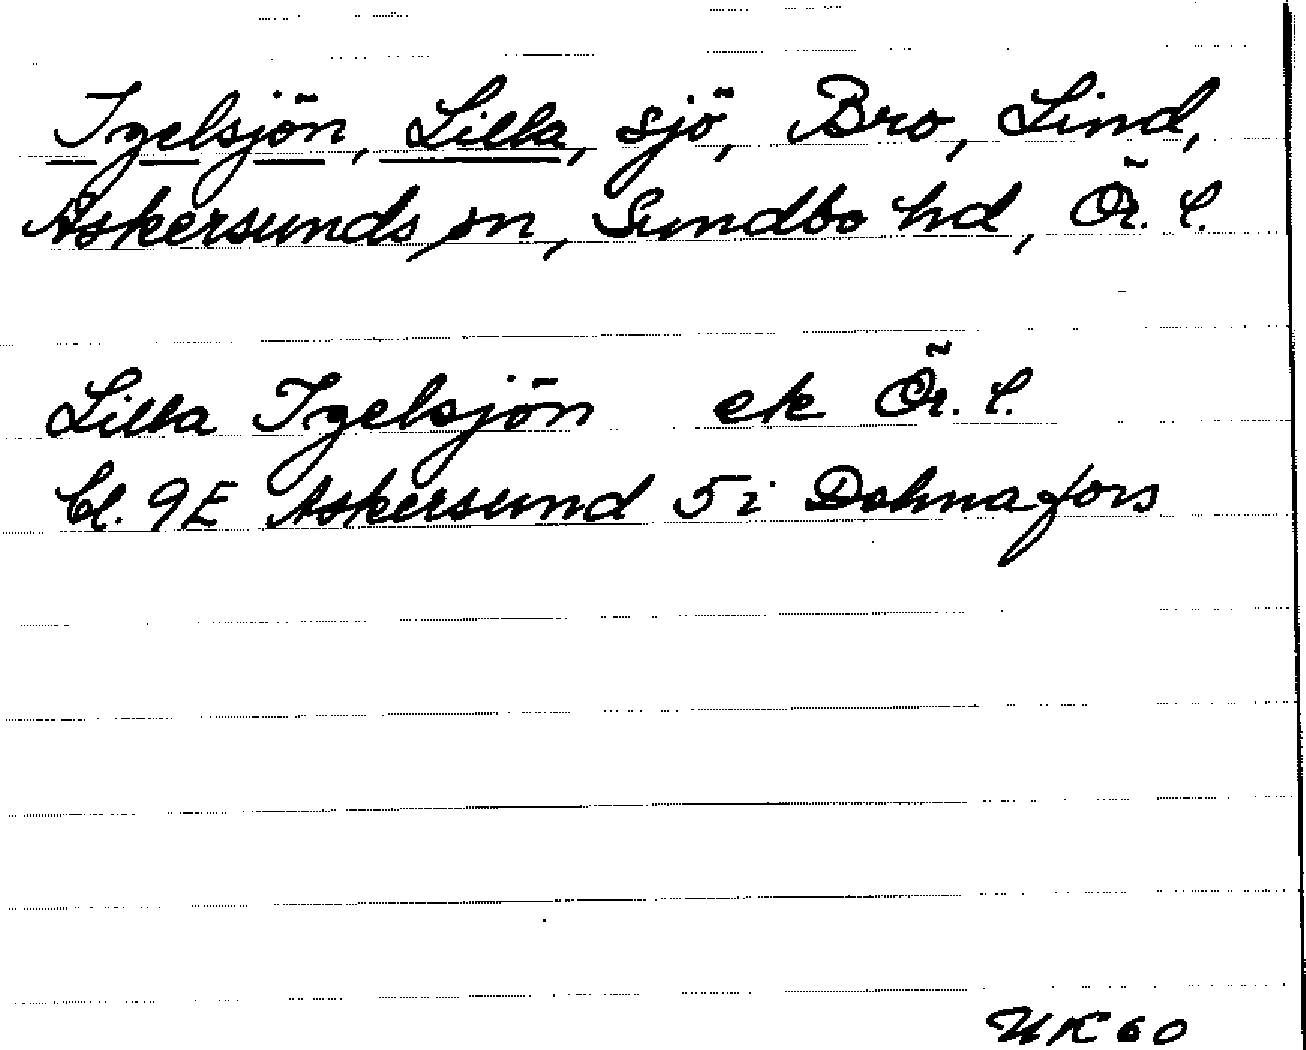 Igelsjön, Lilla, sjö, Bro, Lind,
Askersunds sn, Sundbo hd, Ör. l.
Lilla Igelsjön ek Ör. l.
bl. 9E Askersund 5i Dohnafors
UK 60